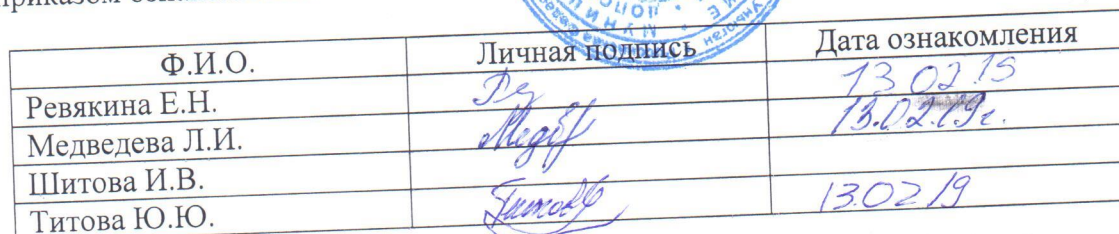 приказом
Ф.И.О. Личная подпись Дата ознакомления
Ревякина Е.Н. 13 02 19
Медведева Л.И. Медв 13.02.19г.
Шитова И.В.
Титова Ю.Ю. Титова 13.02 19